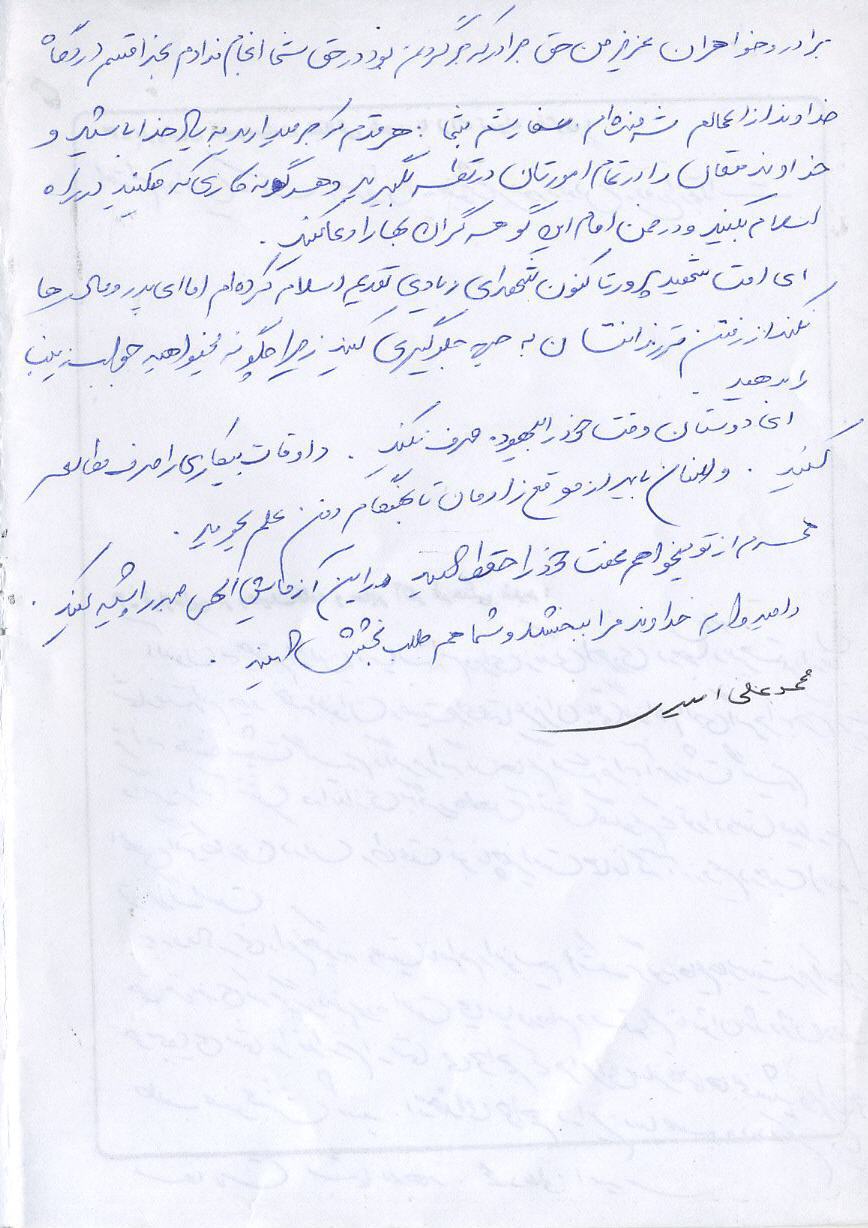 برادر و خواهران عزیز من حق برادری که بر گردن بود در حق شما انجام ندادم بخدا قسم در درگاه
خداوند از اعمالم شرمنده ام سفارشم بشما : هر قدم که بر میدارید به یاد خدا باشید و
خداوند متعال را در تمام امورتان در نظر بگیرید و هر گونه کاری که میکنید در راه
اسلام بکنید و در ضمن امام این گوهر گران بها را دعا کنید .
ای امت شهید پرور تا کنون شهدای زیادی تقدیم اسلام کرده ام اما ای پدر و مادر ها
نکند از رفتن فرزندانتان به جبهه جلوگیری کنید زیرا چگونه میخواهید جواب زینب
را بدهید .
ای دوستان وقت خود را بیهوده صرف نکنید . و اوقات بیکاری را صرف مطالعه
کنید . و انسان باید از موقع زادمان تا بهنگام دفن علم بجوید .
همسرم از تو میخواهم عفت خود را حفظ کنید و در این آزمایش الهی صبر را پیشه کنید .
و امیدوارم خداوند مرا ببخشد و شما هم طلب بخشش کنید .
محمد علی اسدی